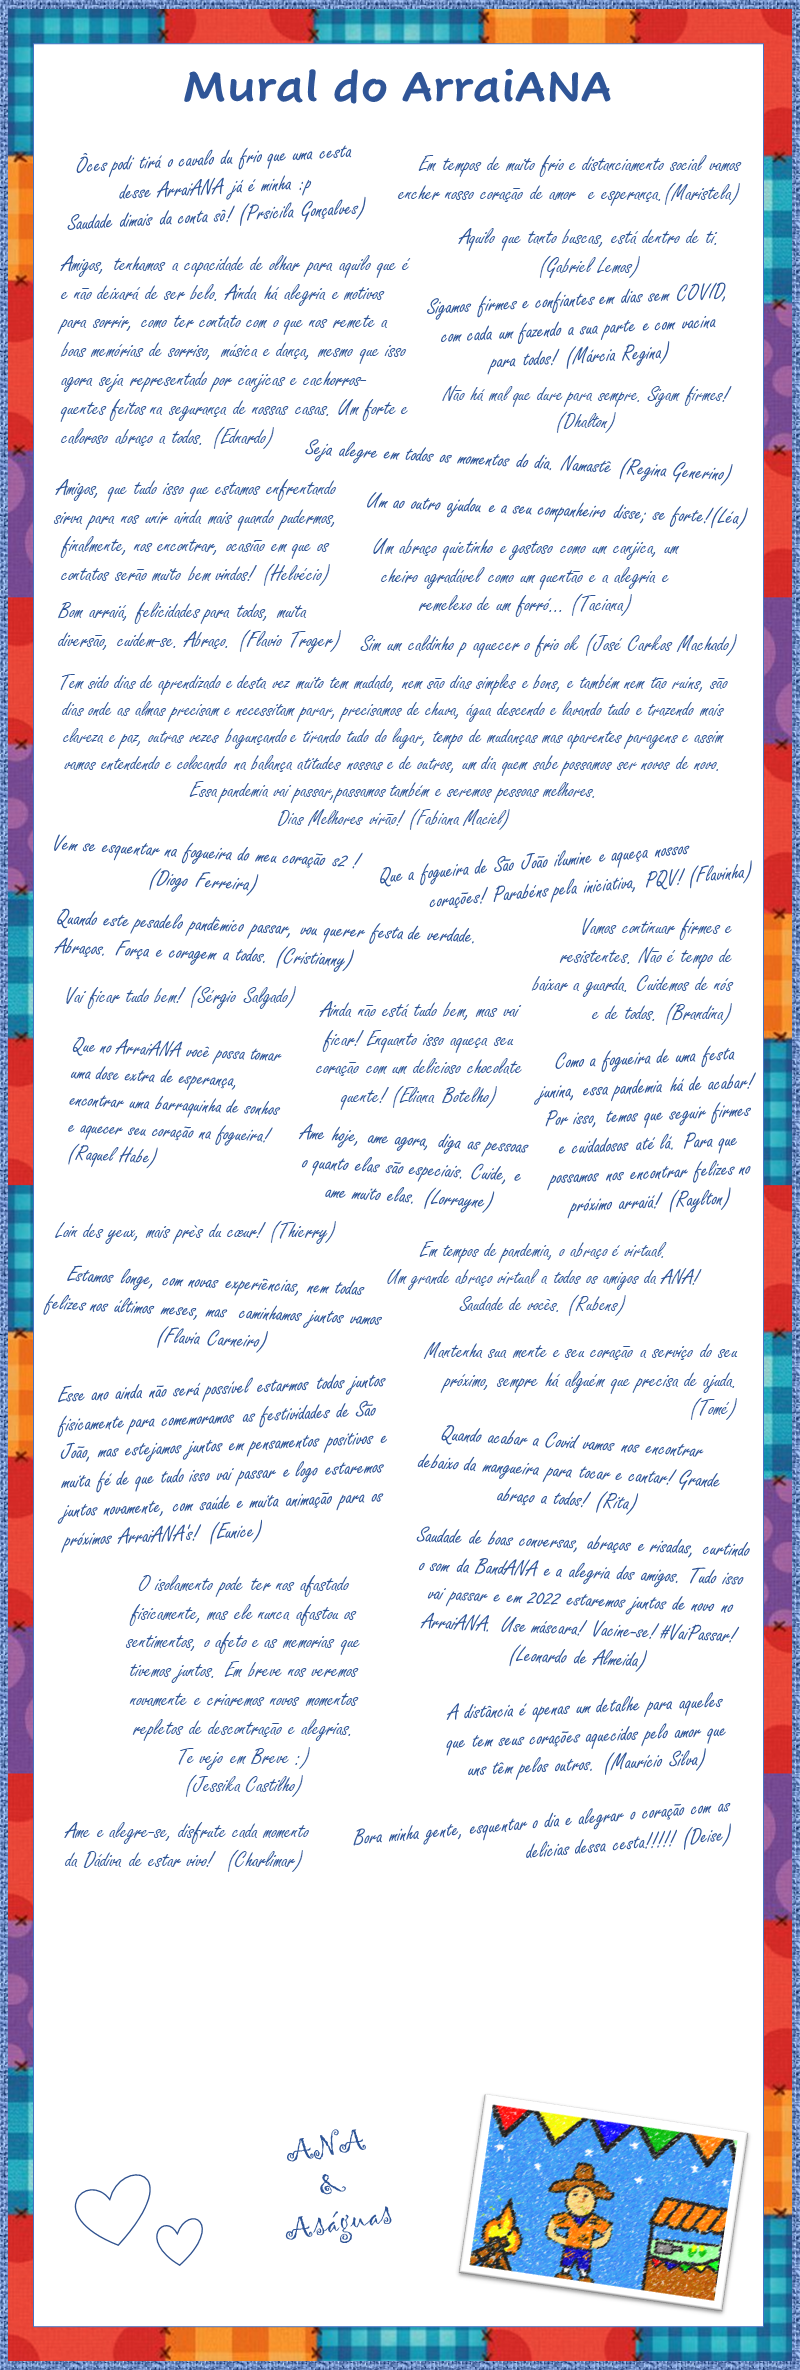 Mural do ArraiANA
Ôces podi tirá o cavalo du frio que uma cesta
desse ArraiANA já é minha :p
Saudade dimais da conta sô! (Prsicila Gonçalves)
Em tempos de muito frio e distanciamento social vamos
encher nosso coração de amor e esperança. (Maristela)
Aquilo que tanto buscas, está dentro de ti.
(Gabriel Lemos)
Amigos, tenhamos a capacidade de olhar para aquilo que é
e não deixará de ser belo. Ainda há alegria e motivos
para sorrir, como ter contato com o que nos remete a
boas memórias de sorriso, música e dança, mesmo que isso
agora seja representado por canjicas e cachorros-
quentes feitos na segurança de nossas casas. Um forte e
caloroso abraço a todos. (Ednardo)
Sigamos firmes e confiantes em dias sem COVID,
com cada um fazendo a sua parte e com vacina
para todos! (Márcia Regina)
Não há mal que dure para sempre. Sigam firmes!
(Dhalton)
Seja alegre em todos os momentos do dia. Namastê (Regina Generino)
Amigos, que tudo isso que estamos enfrentando
sirva para nos unir ainda mais quando pudermos,
finalmente, nos encontrar, ocasião em que os
contatos serão muito bem vindos! (Helvécio)
Um ao outro ajudou e a seu companheiro disse; se forte!(Léa)
Um abraço quietinho e gostoso como um canjica, um
cheiro agradável como um quentão e a alegria e
remelexo de um forró... (Taciana)
Bom arraiá, felicidades para todos, muita
diversão, cuidem-se. Abraço. (Flavio Troger)
Sim um caldinho p aquecer o frio ok (José Carkos Machado)
Tem sido dias de aprendizado e desta vez muito tem mudado, nem são dias simples e bons, e também nem tão ruins, são
dias onde as almas precisam e necessitam parar, precisamos de chuva, água descendo e lavando tudo e trazendo mais
clareza e paz, outras vezes bagunçando e tirando tudo do lugar, tempo de mudanças mas aparentes paragens e assim
vamos entendendo e colocando na balança atitudes nossas e de outros, um dia quem sabe possamos ser novos de novo.
Essa pandemia vai passar,passamos também e seremos pessoas melhores.
Dias Melhores virão! (Fabiana Maciel)
Vem se esquentar na fogueira do meu coração s2 !
(Diogo Ferreira)
Que a fogueira de São João ilumine e aqueça nossos
corações! Parabéns pela iniciativa, PQV! (Flavinha)
Quando este pesadelo pandêmico passar, vou querer festa de verdade.
Abraços. Força e coragem a todos. (Cristianny)
Vamos continuar firmes e
resistentes. Não é tempo de
baixar a guarda. Cuidemos de nós
e de todos. (Brandina)
Vai ficar tudo bem! (Sérgio Salgado)
Ainda não está tudo bem, mas vai
ficar! Enquanto isso aqueça seu
coração com um delicioso chocolate
quente! (Eliana Botelho)
Que no ArraiANA você possa tomar
uma dose extra de esperança,
encontrar uma barraquinha de sonhos
e aquecer seu coração na fogueira!
(Raquel Habe)
Como a fogueira de uma festa
junina, essa pandemia há de acabar!
Por isso, temos que seguir firmes
e cuidadosos até lá. Para que
possamos nos encontrar felizes no
próximo arraiá! (Raylton)
Ame hoje, ame agora, diga as pessoas
o quanto elas são especiais. Cuide, e
ame muito elas. (Lorrayne)
Loin des yeux, mais près du cœur! (Thierry)
Em tempos de pandemia, o abraço é virtual.
Um grande abraço virtual a todos os amigos da ANA!
Saudade de vocês. (Rubens)
Estamos longe, com novas experiências, nem todas
felizes nos últimos meses, mas caminhamos juntos vamos
(Flavia Carneiro)
Mantenha sua mente e seu coração a serviço do seu
próximo, sempre há alguém que precisa de ajuda.
(Tomé)
Esse ano ainda não será possível estarmos todos juntos
fisicamente para comemoramos as festividades de São
João, mas estejamos juntos em pensamentos positivos e
muita fé de que tudo isso vai passar e logo estaremos
juntos novamente, com saúde e muita animação para os
próximos ArraiANA's! (Eunice)
Quando acabar a Covid vamos nos encontrar
debaixo da mangueira para tocar e cantar! Grande
abraço a todos! (Rita)
Saudade de boas conversas, abraços e risadas, curtindo
o som da BandANA e a alegria dos amigos. Tudo isso
vai passar e em 2022 estaremos juntos de novo no
ArraiANA. Use máscara! Vacine-se! #VaiPassar!
(Leonardo de Almeida)
O isolamento pode ter nos afastado
fisicamente, mas ele nunca afastou os
sentimentos, o afeto e as memorias que
tivemos juntos. Em breve nos veremos
novamente e criaremos novos momentos
repletos de descontração e alegrias.
Te vejo em Breve :)
(Jessika Castilho)
A distância é apenas um detalhe para aqueles
que tem seus corações aquecidos pelo amor que
uns têm pelos outros. (Maurício Silva)
Ame e alegre-se, disfrute cada momento
da Dádiva de estar vivo! (Charlimar)
Bora minha gente, esquentar o dia e alegrar o coração com as
delicias dessa cesta!!!!! (Deise)
ANA
&
Aságuas